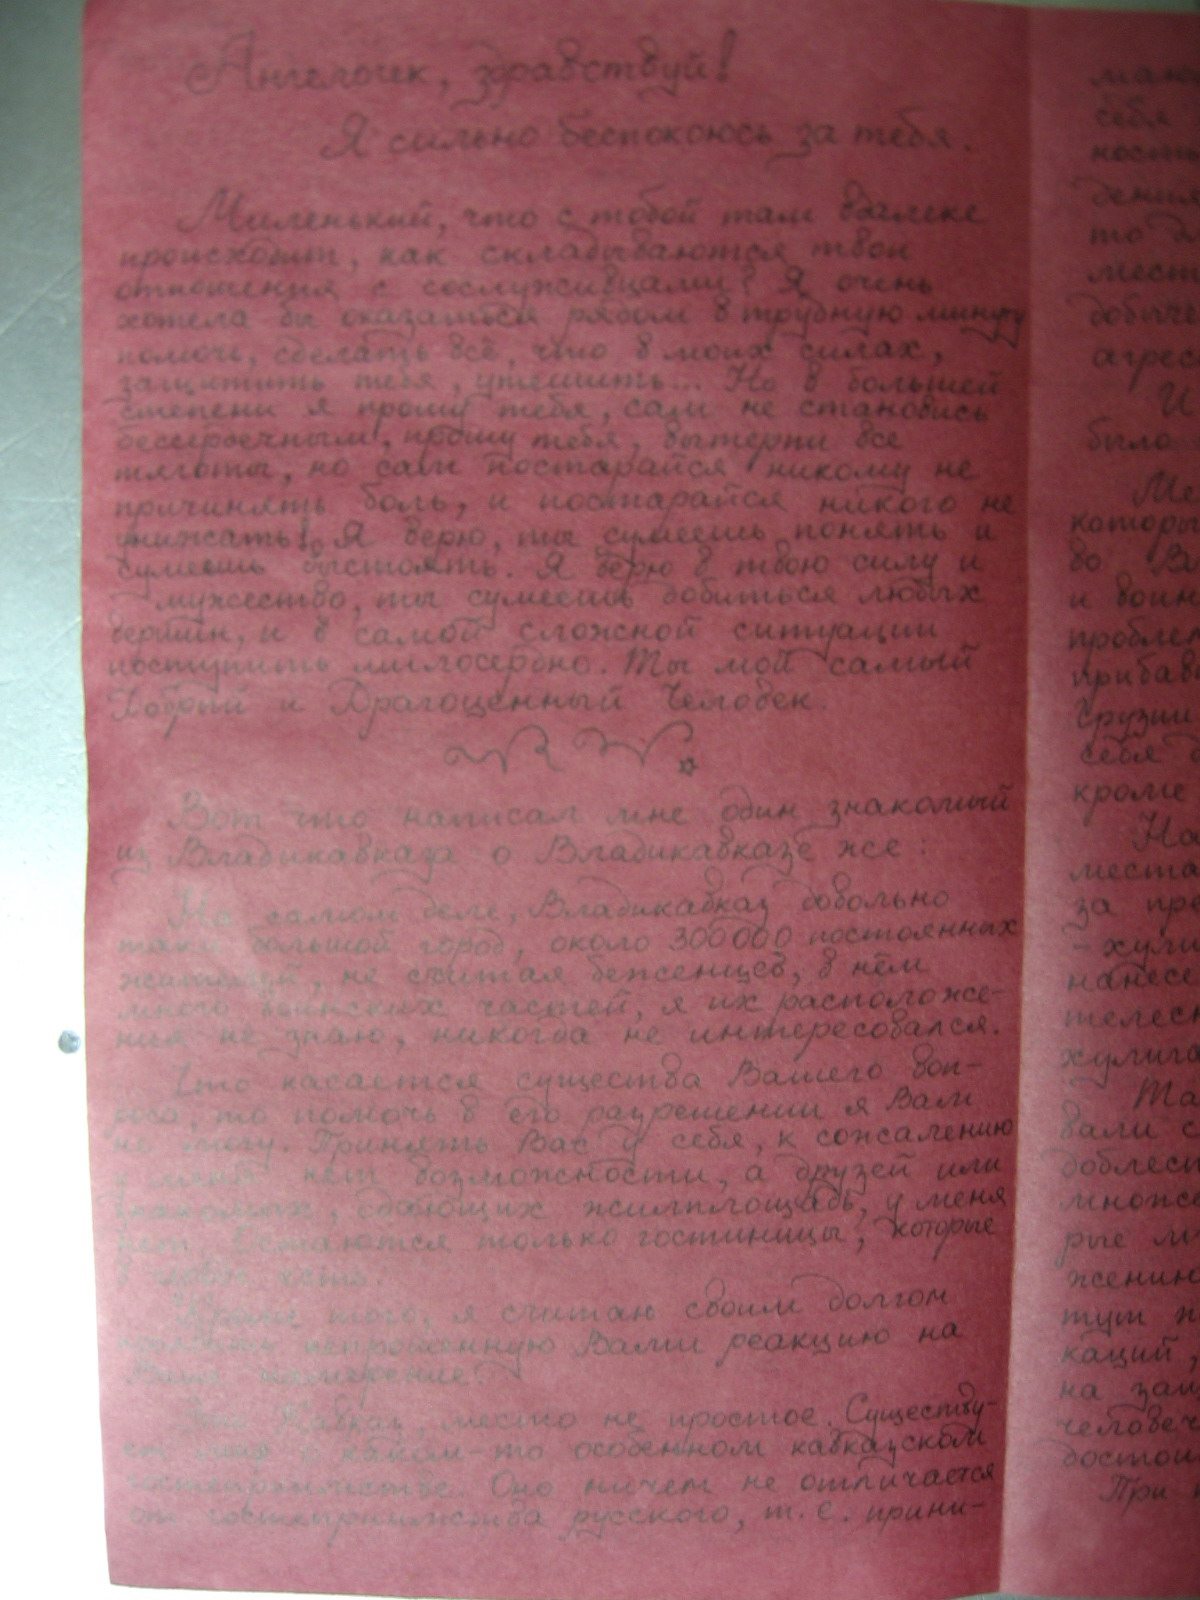 Ангелочек, здравствуй!
Я сильно беспокоюсь за тебя.
Миленький, что с тобой там вдалеке
происходит, как складываются твои
отношения с сослуживцами? Я очень
хотела бы оказаться рядом в трудную минуту
помочь, сделать всё, что в моих силах,
защитить тебя, утешить... Но в большей
степени я прошу тебя, сам не становись
бессердечным, прошу тебя, вытерпи все
тяготы, но сам постарайся никому не
причинять боль, и постарайся никого не
унижать! Я верю, ты сумеешь понять и
сумеешь выстоять. Я верю в твою силу и
мужество, ты сумеешь добиться любых
вершин, и в самой сложной ситуации
поступить милосердно. Ты мой самый
Добрый и Драгоценный Человек.
Вот что написал мне один знакомый
из Владикавказа о Владикавказе же:
На самом деле, Владикавказ довольно
таки большой город, около 300000 постоянных
жителей, не считая беженцев, в нём
много воинских частей, я их расположе-
ния не знаю, никогда не интересовался.
Что касается существа Вашего воп-
роса, то помочь в его разрешении я Вам
не могу. Принять Вас у себя, к сожалению
у меня нет возможности, а друзей или
знакомых, сдающих жилплощадь, у меня
нет. Остаются только гостиницы, которые
в городе есть.
Кроме того, я считаю своим долгом
непрошенную Вами реакцию на
Ваше намерение.
Кавказ, место не простое. Существу-
ет миф о каком-то особенном кавказском
гостеприимстве. Оно ничем не отличается
от гостеприимства русского, т.е. прини-
мают
себя
то
мест
добыче
агрес
И
было
Ме
которы
во
и воин
пробле
прибав
Грузии
себя
кроме
На
места
за пре
- хули
нанесе
телесн
хулига
Та
вали с
доблест
множе
рые
жению
тут
каций,
на защ
человеч
достои
При